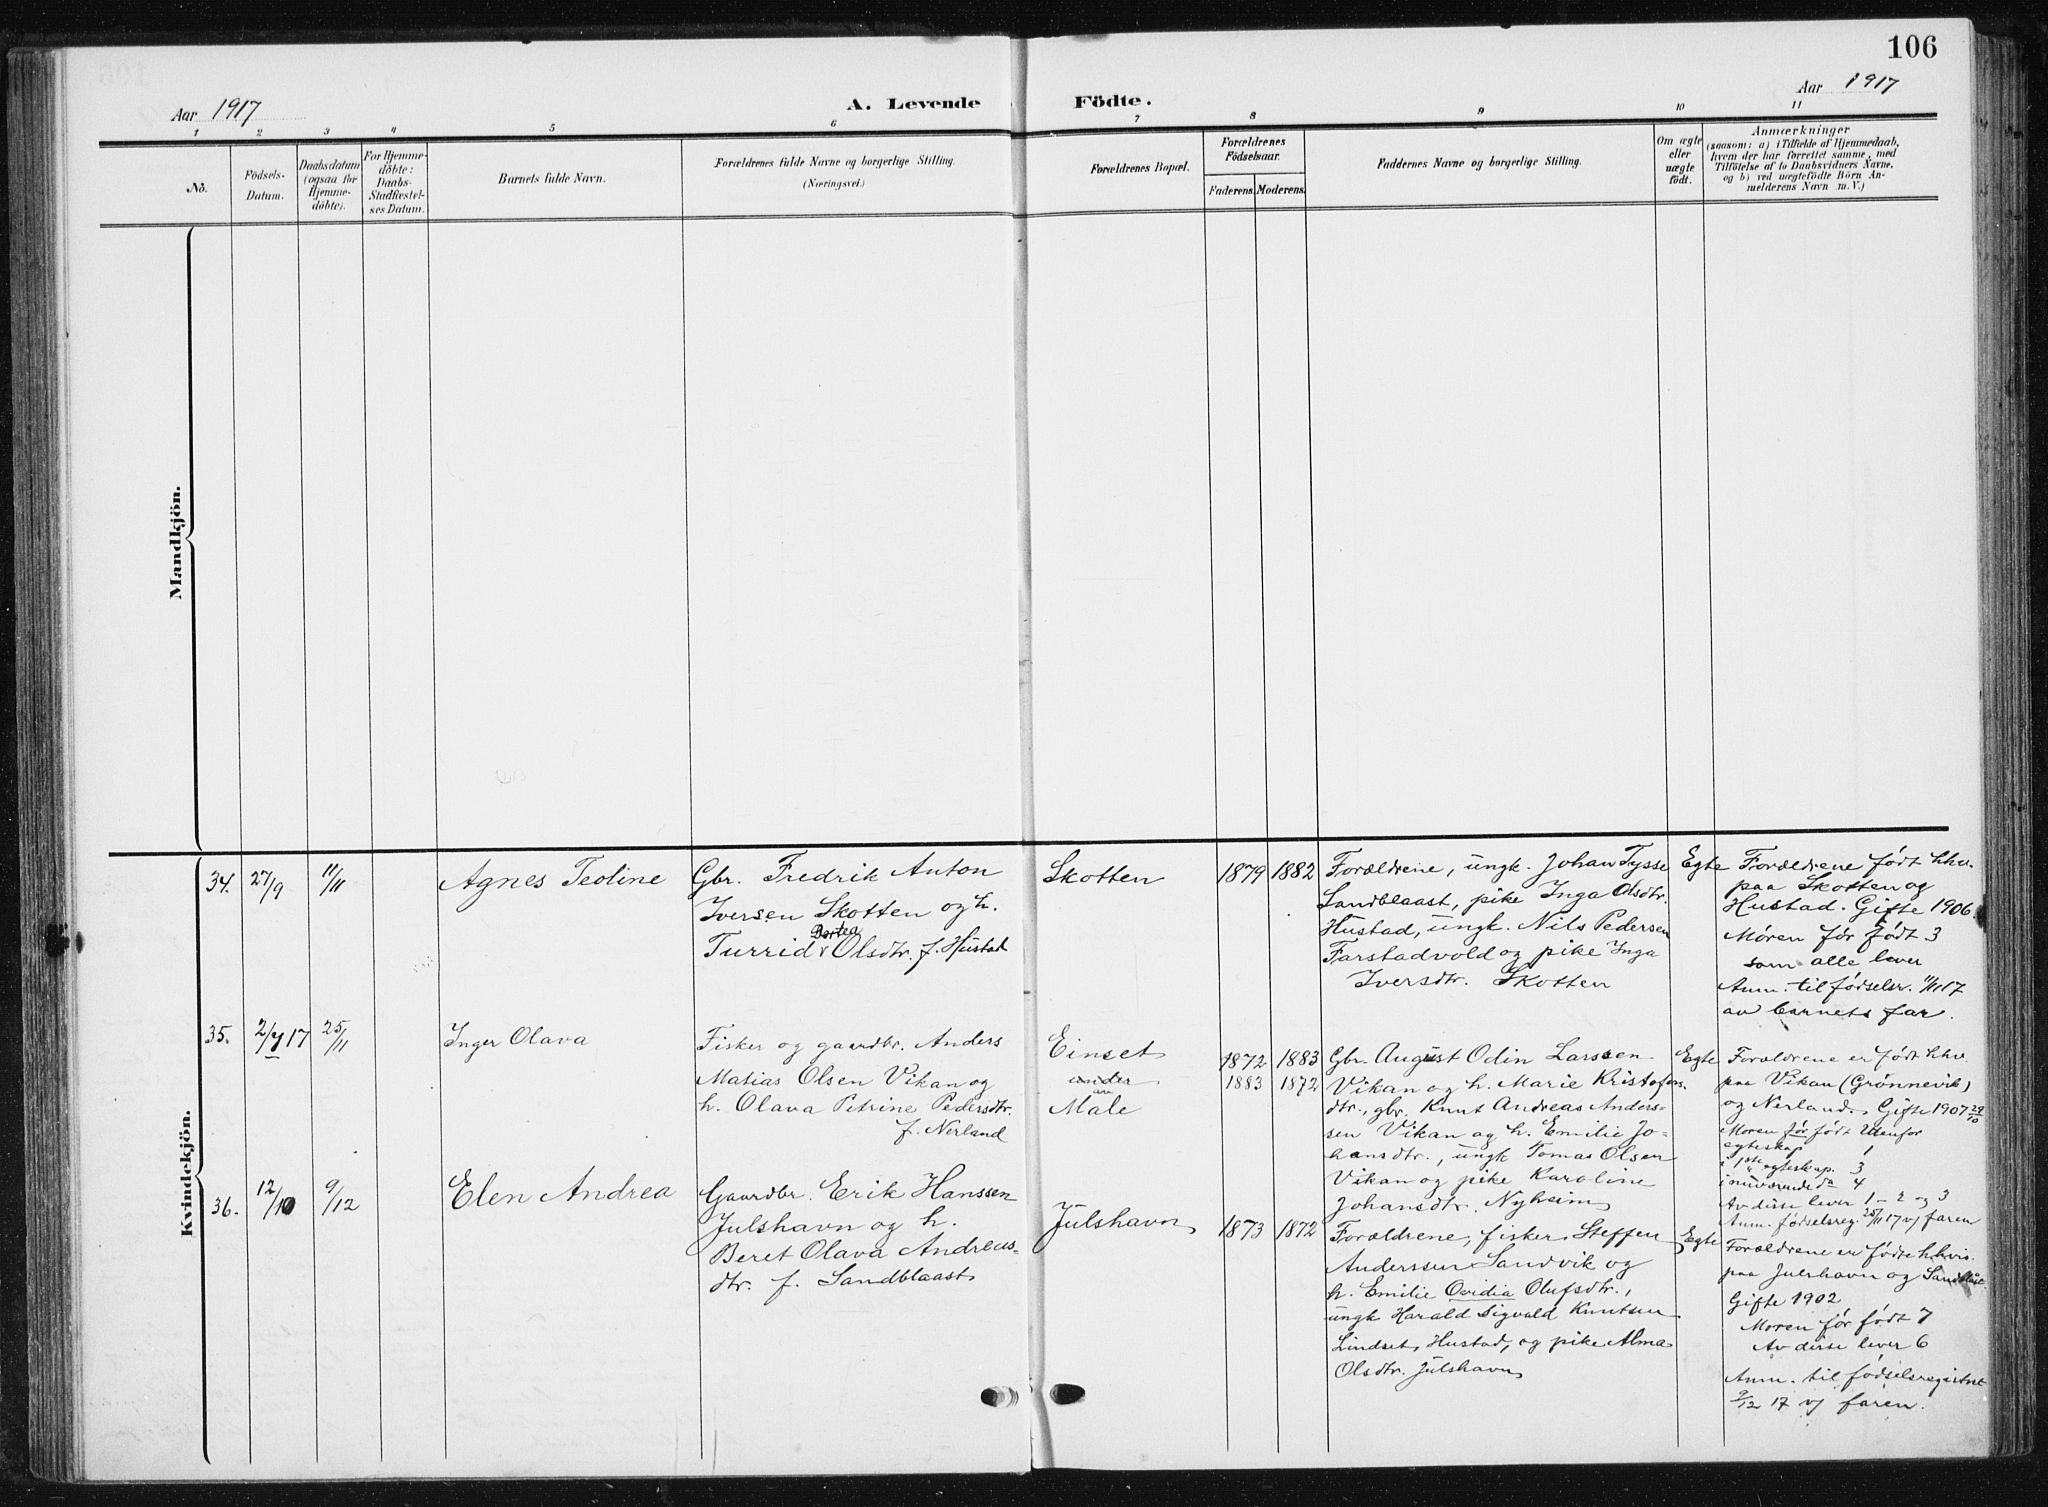 106
Aar 1917
A. Levende Födte.
Aar 1917
1 2 3 4 5 6 7 8 9 10 11
No.
Födsels-
Datum.
Daabsdatum
(ogsaa för
Hjemme-
döbte).
For Hjemme-
döbte:
Daabs-
Stadfæstel-
ses Datum.
Barnets fulde Navn.
Forældrenes fulde Navne og borgerlige Stilling.
(Næringsvei.)
Forældrenes Bopæl.
Forældrenes
Födselsaar.
Faderens. Moderens.
Faddernes Navne og borgerlige Stilling.
Om ægte
eller
uægte
födt.
Anmærkninger
(saasom: a) i Tilfælde af Hjemmedaab,
hvem der har forrettet samme, med
Tilföielse af to Daabsvidners Navne,
og b) ved uægtefödte Börn An-
melderens Navn m. V.)
Mandkjön.
Kvindekjön.
34. 27/9 11/11
Agnes Teoline
Gbr. Fredrik Anton
Iversen Skotten og h.
Bertea
Turrid v Olsdtr. f. Hustad
Skotten
1879 1882
Forældrene, ungk. Johan Tysse
Sandblaast, pike Inga Olsdtr.
Hustad, ungk. Nils Pedersen
Farstadvold og pike Inga
Iversdtr. Skotten
Egte
Forældrene født hhv.
paa Skotten og
Hustad. Gifte 1906.
Moren før født 3
som alle lever
Anm. til fødselsr. 11/11 17
av barnets far.
35. 17 25/11
Inger Olava
Fisker og gaardbr. Anders
Matias Olsen Vikan og
h. Olava Petrine Pedersdtr.
f. Nerland
Einset
under
Male
1872 1883
1883 1872
Gbr. August Odin Larssen
Vikan og h. Marie Kristofers
dtr., gbr. Knut Andreas Anders-
sen Vikan og h. Emilie Jo-
hansdtr., ungk Tomas Olsen
Vikan og pike Karoline
Johansdtr. Nyheim
Egte
Forældrene er født hhv.
paa Vikan (Grønnevik)
og Nerland. Gifte 1907 29/10
Moren før født utenfor
egteskap 1
i 1ste egteskap. 3
i nuværende do 4
Av disse lever 1 - 2 og 3
Anm. fødselsreg. 25/11 17 v/ faren
36. 12/10 9/12
Elen Andrea
Gaardbr. Erik Hanssen
Julshavn og h.
Beret Olava Andreas-
dtr. f. Sandblaast
Julshavn
1873 1872
Forældrene, fisker Steffen
Anderssen Sandvik og
h. Emilie Ovidia Olufsdtr.,
ungk Harald Sigvald Knutsen
Lindset, Hustad, og pike Alma
Olsdtr. Julshavn
Egte
Forældrene er fødte hhvis.
paa Julshavn og Sandblåst
Gifte 1902
Moren før født 7
Av disse lever 6
Anm. til fødselsregistret
9/12 17 v/ faren.